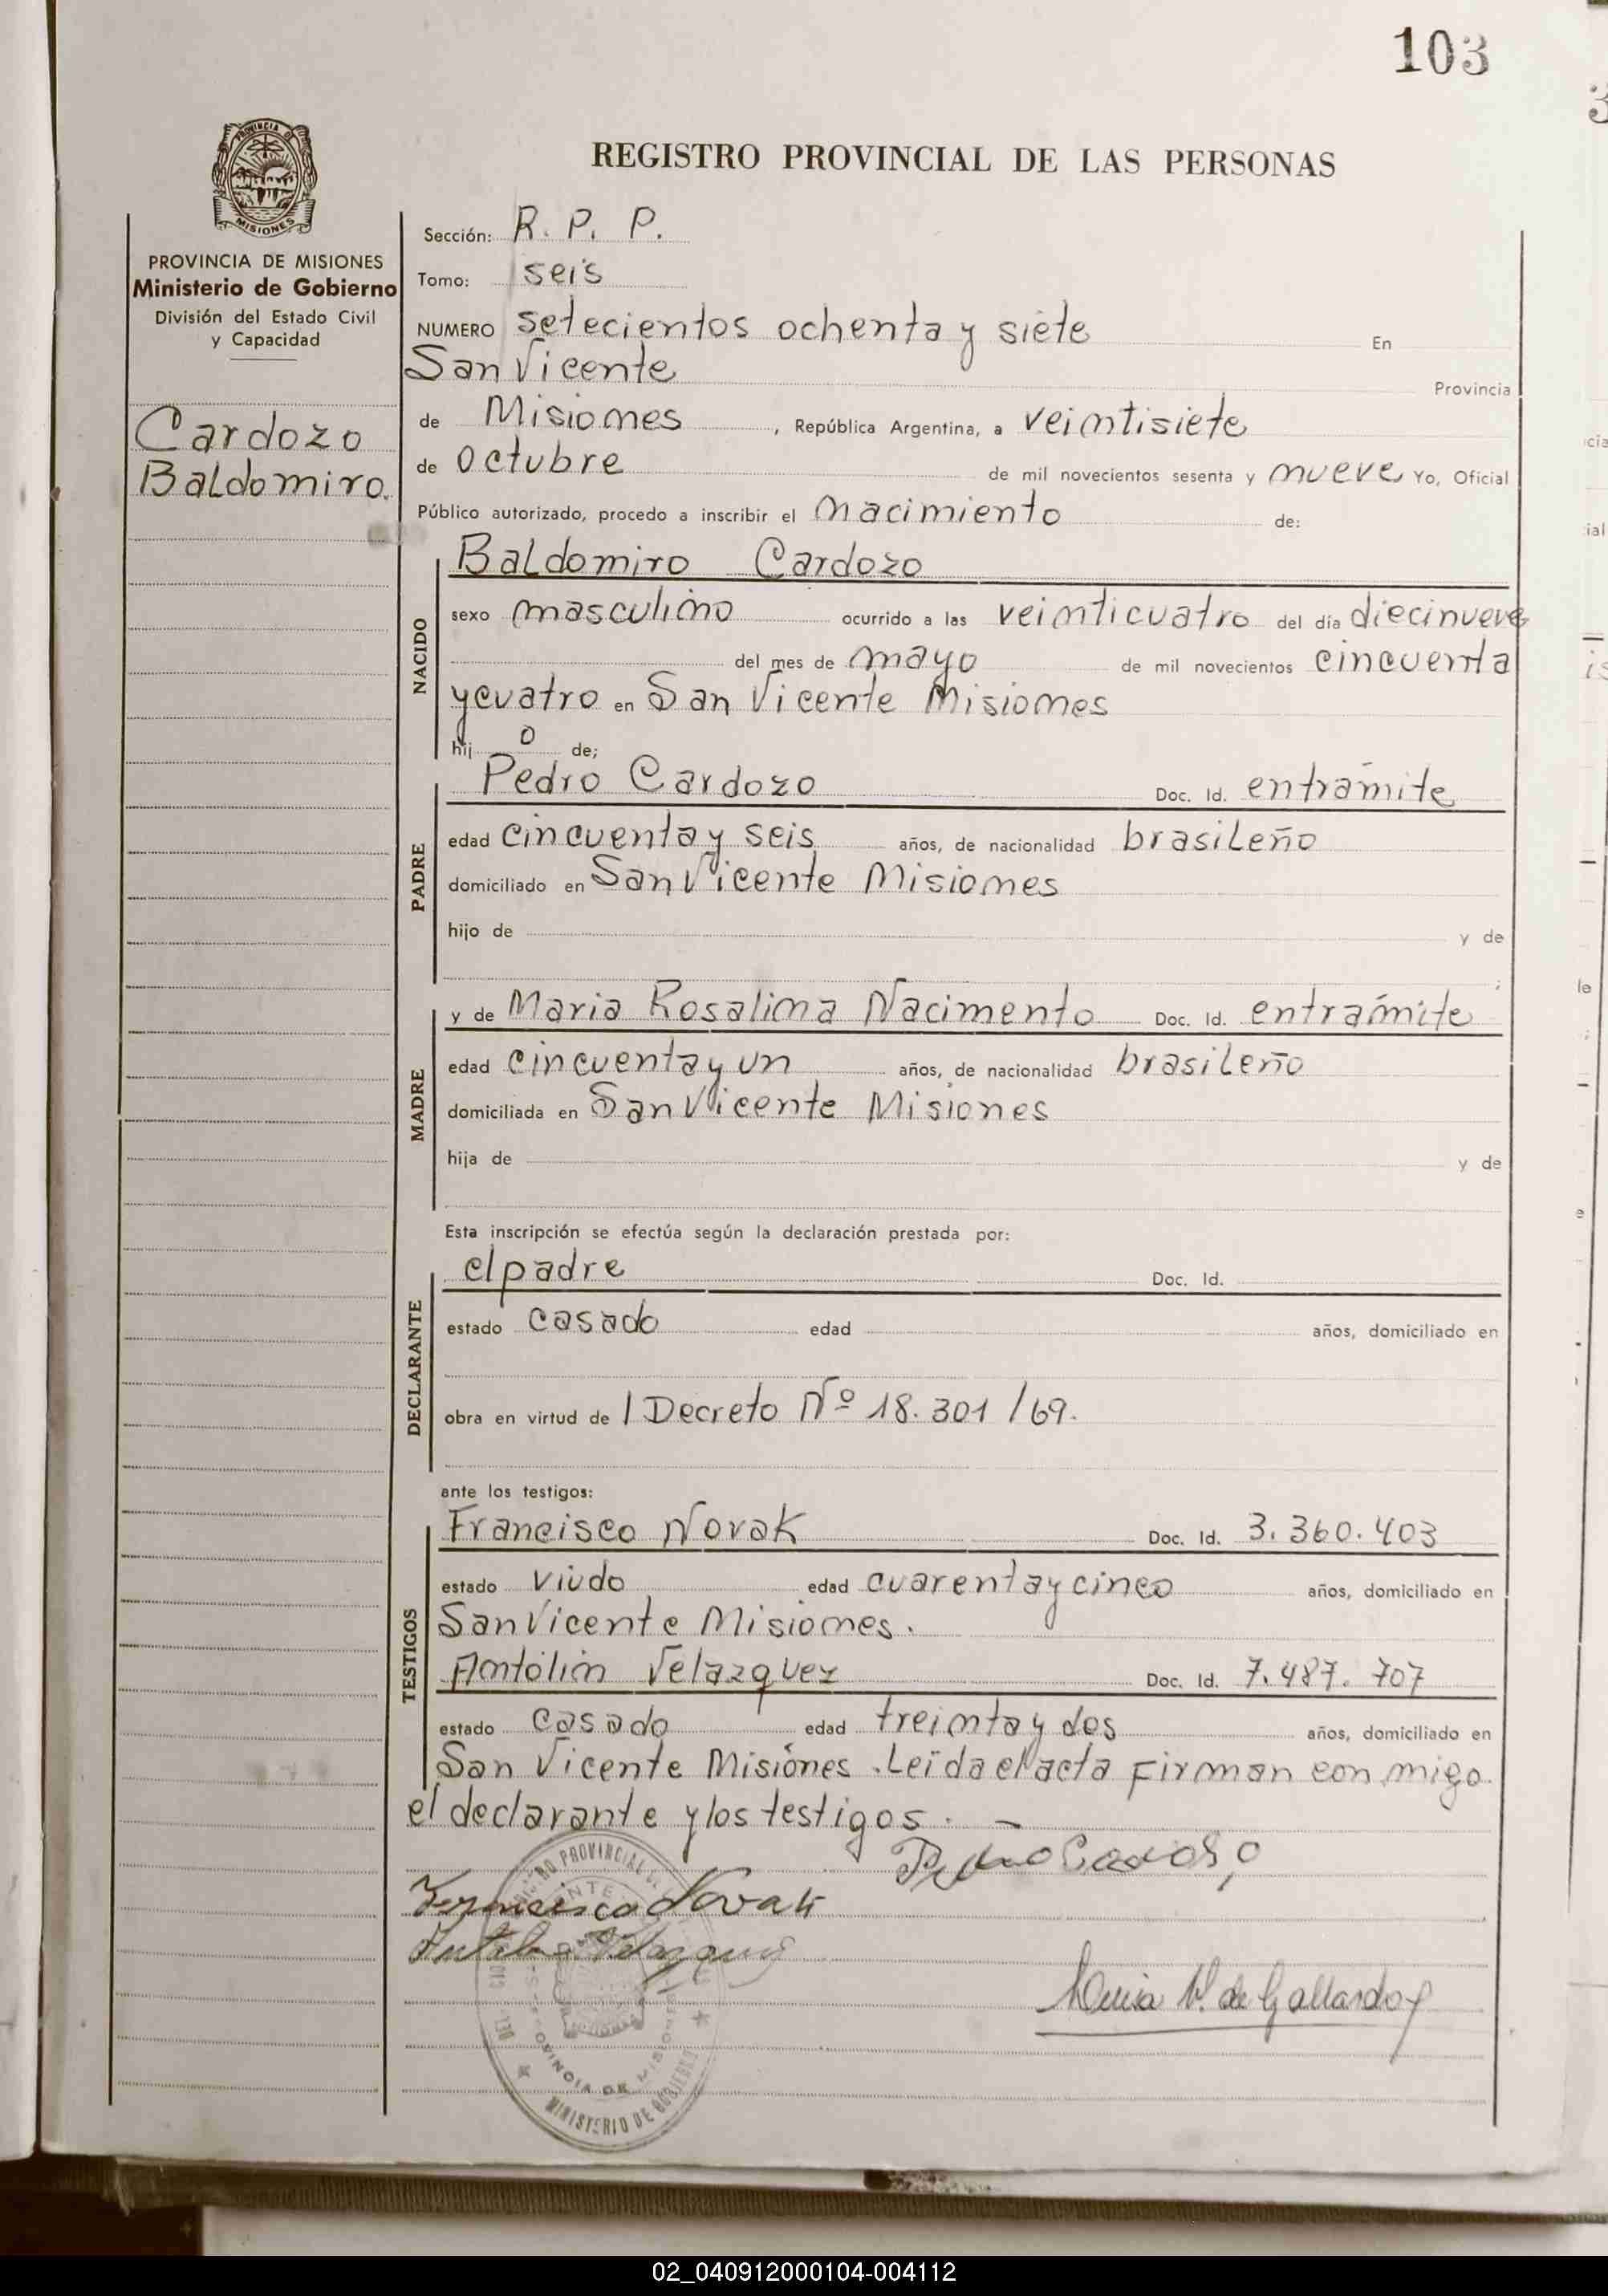 103
REGISTRO PROVINCIAL DE LAS PERSONAS
PROVINCIA DE MISIONES
Ministerio de Gobierno
División del Estado Civil
y Capacidad
Cardozo
Baldomiro.
Sección: R. P. P.
Tomo: seis
NUMERO setecientos ochenta y siete En
San Vicente Provincia
de Misiones, República Argentina, a veintisiete
de octubre de mil novecientos sesenta y nueve Yo, Oficial
Público autorizado, procedo a inscribir el nacimiento de:
NACIDO
Baldomiro Cardozo
sexo masculino ocurrido a las veinticuatro del día diecinueve
del mes de mayo de mil novecientos cincuenta
y cuatro en San Vicente Misiones
hij o de;
PADRE
Pedro Cardozo Doc. Id. en trámite
edad cincuenta y seis años, de nacionalidad brasileño
domiciliado en San Vicente Misiones
hijo de y de
;
MADRE
y de Maria Rosalina Nacimento Doc. Id. en trámite
edad cincuenta y un años, de nacionalidad brasileño
domiciliada en San Vicente Misiones
hija de y de
Esta inscripción se efectúa según la declaración prestada por:
DECLARANTE
el padre Doc. Id.
estado casado edad años, domiciliado en
obra en virtud de / Decreto Nº 18.301 /69.
ante los testigos:
TESTIGOS
Francisco Novak Doc. Id. 3.360.403
estado viudo edad cuarenta y cinco años, domiciliado en
San Vicente Misiones.
Antolin Velazquez Doc. Id. 7.487.707
estado casado edad treinta y dos años, domiciliado en
San Vicente Misiones. Leída el acta firman con migo
el declarante y los testigos.
Francisco Novak
de Gallardo
MINISTERIO DE GOBIERNO
02_040912000104-004112